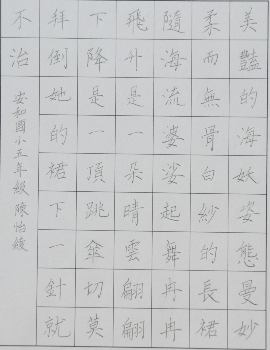 美豔的海妖姿態曼妙
柔而無骨白紗的長裙
隨海流婆娑起舞冉冉
飛升是一朵晴雲翩翩
下降是一頂跳傘切莫
拜倒她的裙下一針就
不治
安和國小五年級陳怡綾